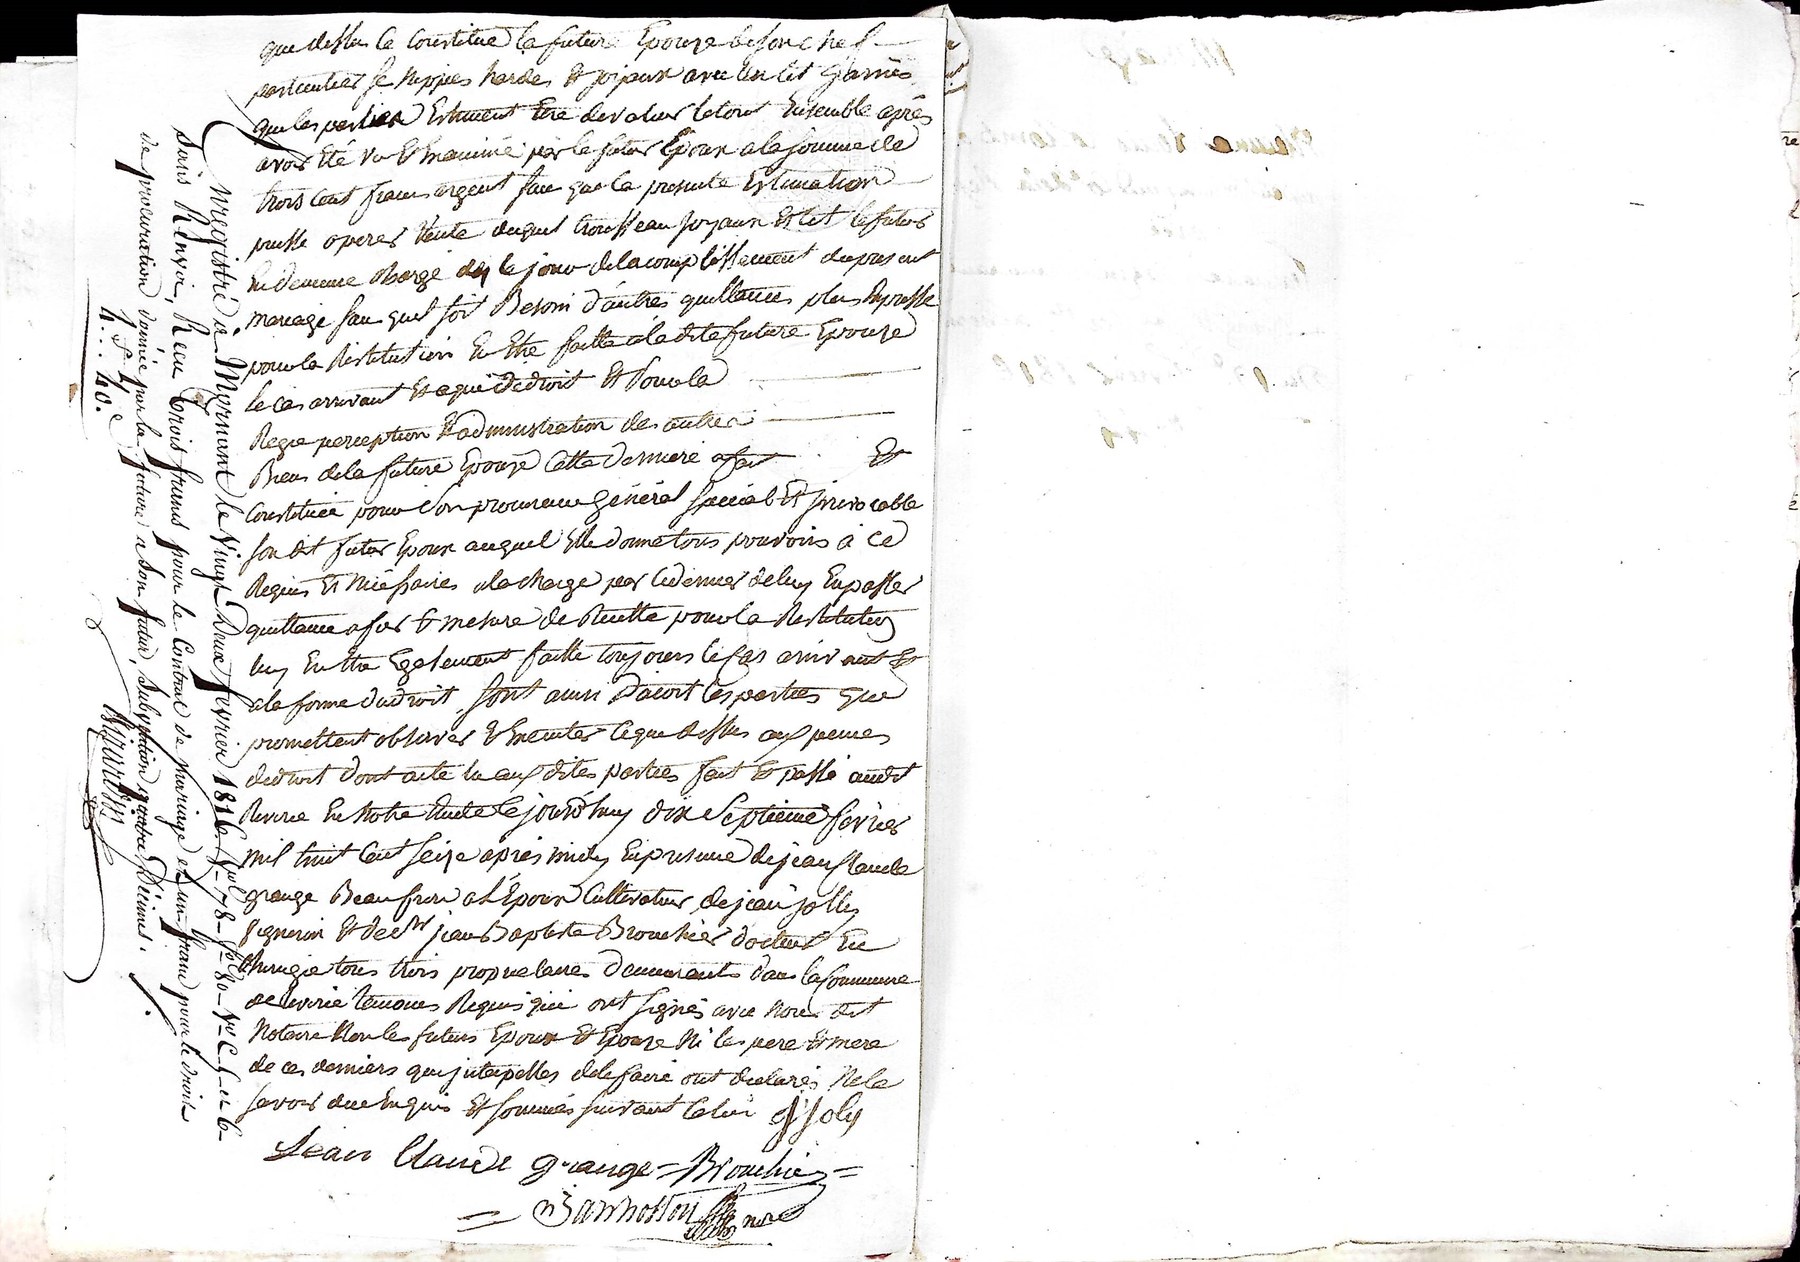 que dessus ce constitue la future Epouze de son chef
particulier se nippes hardes et joyaux avec un lit garnies
que les parties Estiment Etre de valeur le tout Ensemble après
avoir Eté vu & Examiné par le futur Epoux a la somme de
trois cent francs argent sans que la presente Estimation
puisse operer Vente duquel trousseau joyaux et lit le futur
En demeure chargé des le jour de lacomplissement du present
mariage sans quil soit Besoin d'autres quittances plus Expresse
pour la Restitution En Etre faitte a la dite future Epouze
le cas arrivant Et a qui de droit Et pour la
Regie perception & administration des autres
Biens de la future Epouze Cette derniere a fait Et
Constituée pour son procureur général special Et irrevocable
son dit futur Epoux auquel Elle donne tous pouvoirs à ce
Requis Et nécéssaires a la charge par ce dernier de luy En passer
quittance a fur & mesure de Recette pour la Restitution
luy En Etre Egalement faitte toujours le cas arrivant Et
a la forme du droit, sont ainsi d'acort les parties que
promettent observer & Executer ce que dessus aux peines
de droit dont acte lu aux dites parties fait Et passé audit
Riverie En notre Etude le jourd'huy dix Septieme fevrier
mil huit Cent seize après midy En presence de jean Claude
grange Beaufrere a l'Epoux Cultivateur, de jean jolly
Vigneron Et de Sr jean Baptiste Brouchier docteur En
chirurgie tous trois propriétaires demeurants dans la Commune
de Riverie temoins Requis qui ont signés avec nous dit
Notaire Non les futurs Epoux Et Epouze Ni les pere Et mere
de ces derniers que jnterpellés de le faire ont declarés Ne le
savoir de ce Enquis Et sommés suivant la loi J Joly
Jean Claude grange = Brouchier =
nre
Enregistré à Mornant le Vingt Deux fevrier 1816. Vol 78 fo 80 Vo C 5 et 6
sans Renvoi, Reçu trois francs pour le Contrat de mariage et un franc pour le droit
de procuration donnée par la future a son futur, Subvention quarante Décimes.
4 f 40 c
4 . . 40.